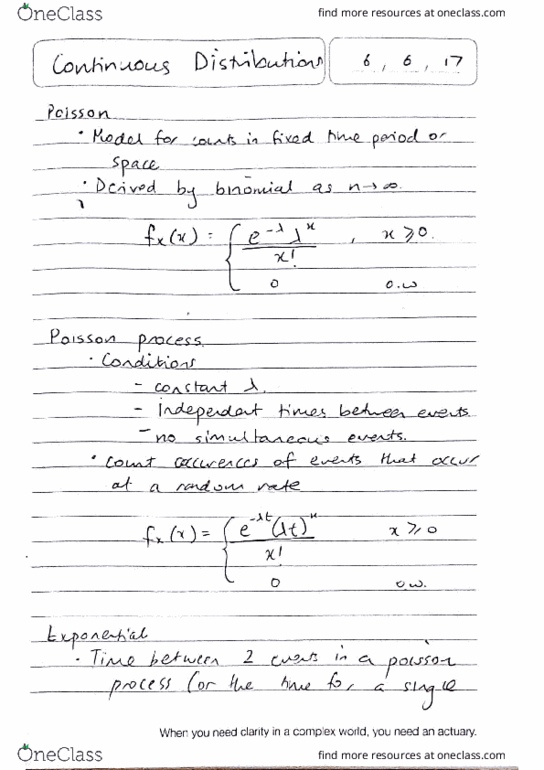 OneClass find more resources at oneclass.com
Continuous Distributions 6, 6, 17
Poisson
· Model for counts in fixed time period or
space
· Derived by binomial as n→∞.
fx(x) = { e^-λ λ^x / x! , x ≥ 0.
0 o.w
Poisson process.
· Conditions
- constant λ.
- independent times between events
- no simultaneous events.
· count occurences of events that occur
at a random rate
fx(x) = { e^-λt (λt)^x / x! x ≥ 0
0 o.w.
Exponential
· Time between 2 events in a poisson
process (or the time for a single
When you need clarity in a complex world, you need an actuary.
OneClass find more resources at oneclass.com